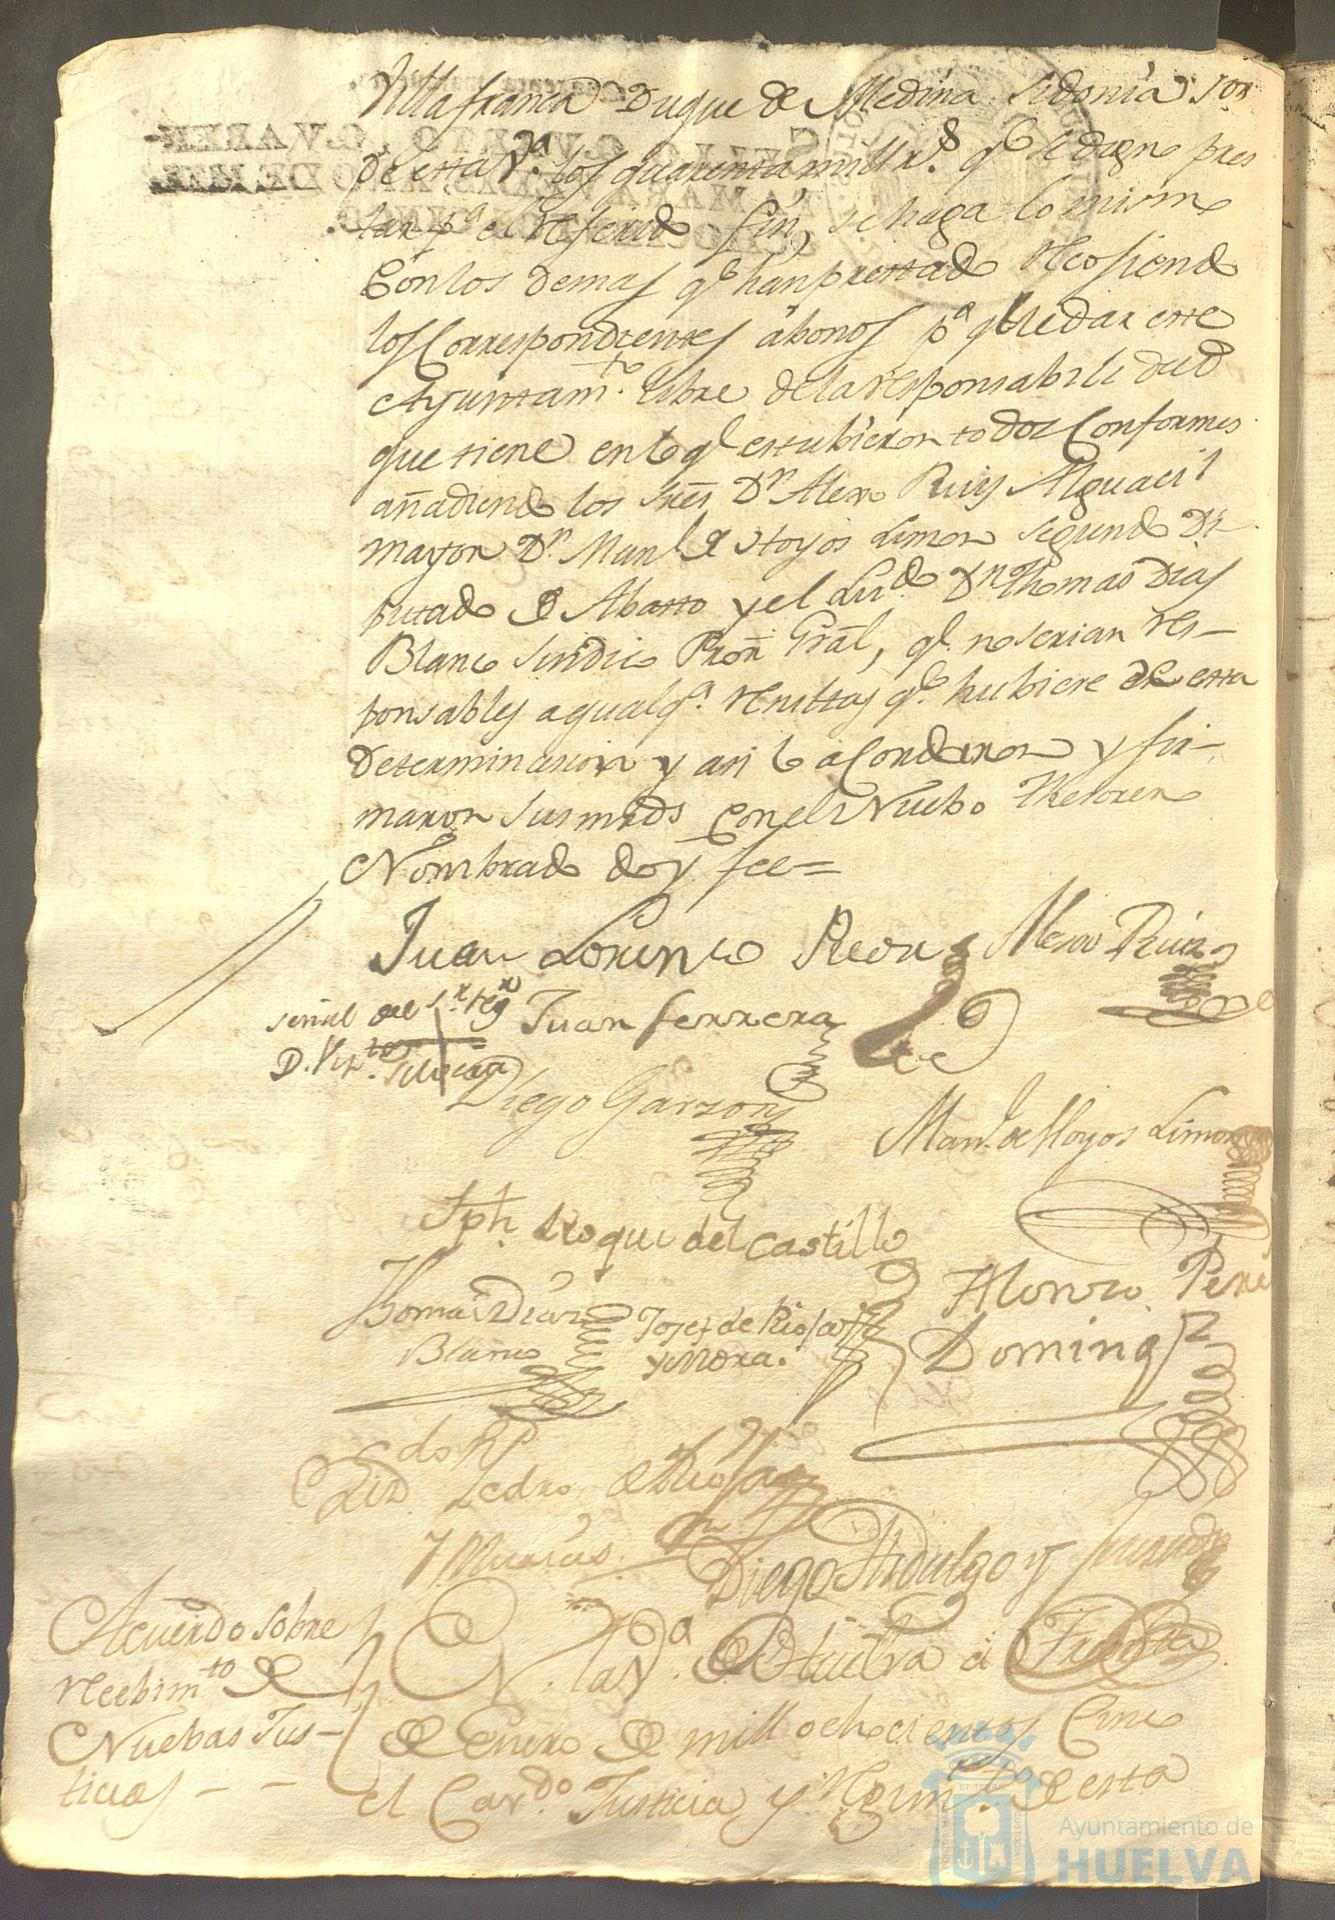 Villafranca Duque de Medina Sidonia Sor
de esta Va. los quarenta mill rs. qe. se dign pres
tar pa. el referido fin, se haga lo mismo
con los demas qe. han prestado recosiendo
los correspondientes abonos pa. quedar este
Ayuntamto. libre de la responsabilidad
que tiene en lo ql estubieron todos conformes
añadiendo los Sres. Dn. Alexo Ruiz Alguacil
mayor Dn. Manl. de Hoyos Limon segundo Di
putado de Abasto y el Lizdo. Dn. Thomas Dias
Blanco Sindico Pror. Gral, ql. no serian res-
ponsables a qualqa. resultas qe. hubiere de esta
determinacion y asi lo acordaron y fir-
maron sus mrds con el Nuebo Thesorero
Nombrado doy fee =
Juan Lorenzo Redr
Alexo Ruiz
señal del Sr. regr
D. Vizte. Silvera
Juan ferrera
Diego Garzon
Manl. de Hoyos Limon
Jph. Roque del Castillo
Thomas Diaz
Blanco
Josef de Rioja
y Mora.
Alonzo Pere
Doming
Lizdo. Dn Pedro de Rioja
Diego Hidalgo y
Acuerdo sobre
recebimto de
Nuebas Jus-
ticias - -
En la Va. de Huelva a
de Enero de mill ochocientos cinco
el Cavdo. Justicia y Regimto. de esta
Ayuntamiento de
HUELVA